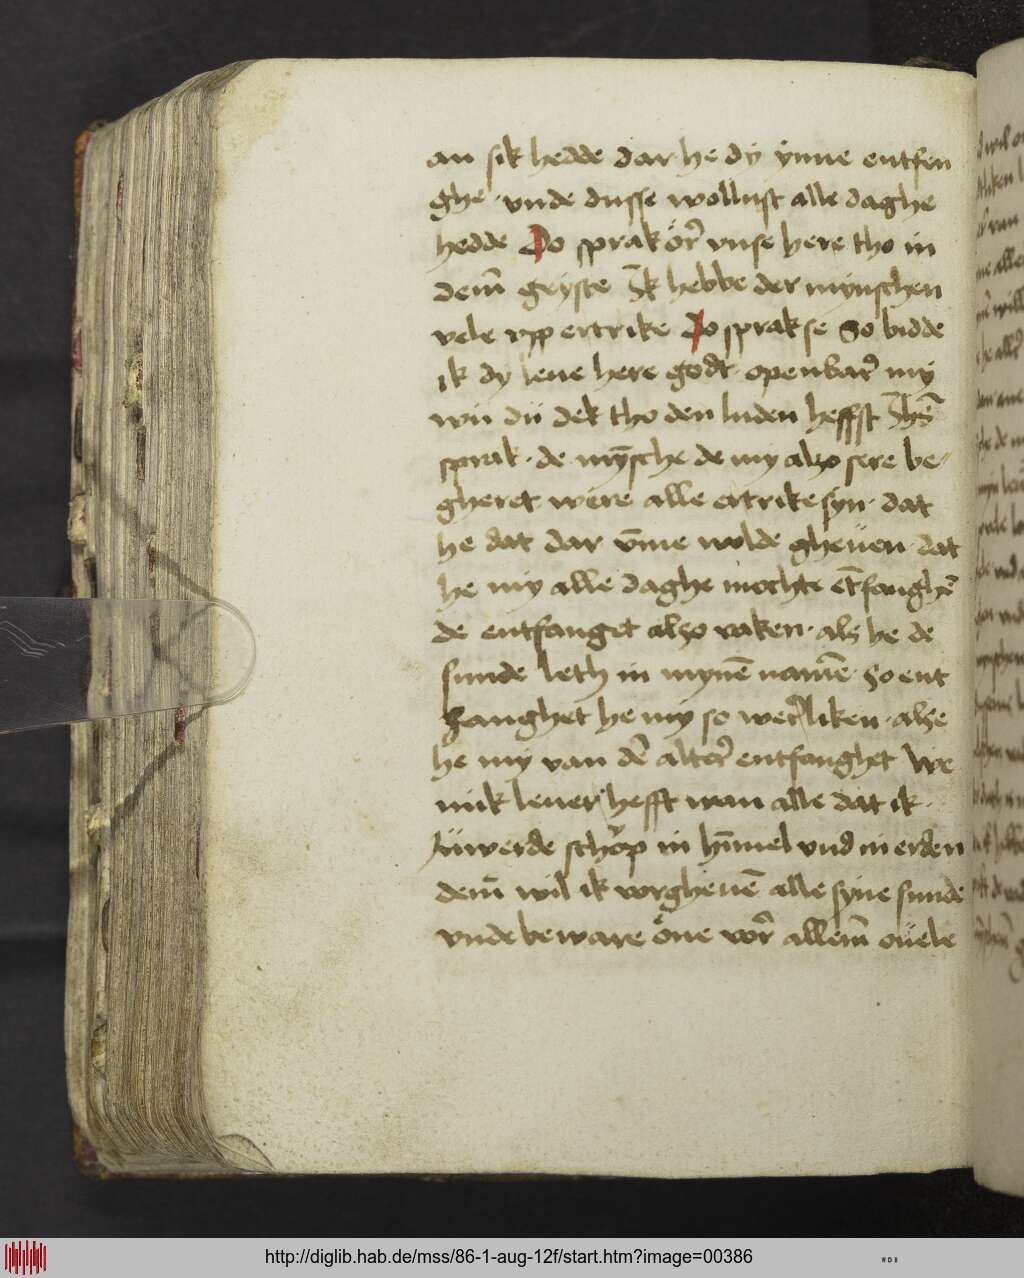 an sik hedde dar he dÿ ÿnne entfen
ghe · vnde dusse wollust alle daghe
hedde Do sprak ör̄ vnse here tho in
dem̄ geÿste Jk hebbe der mÿnschen
vele vpp ertrike Do sprak se So bidde
ik dy leue here godt openbar̄ mÿ
wu du dek tho den luden heffst Jhs̄
sprak · de mȳsche de my alzo sere be-
gheret were alle ertrike syn · dat
he dat dar v̄me wolde gheuen · dat
he my alle daghe mochte et̄fanghē
de entfanget alzo vaken · als he de
sunde leth in mynē namē · So ent
fanghet he my so wer̄liken · alze
he my van dē alter̄ entfanghet We
mik leuer hefft wan alle dat ik
schop in hīmel vnd in erden
dem̄ wil ik vorgheuē alle syne sunde
vnde beware öne vor̄ allem̄ ouele
http://diglib.hab.de/mss/86-1-aug-12f/start.htm?image=00386